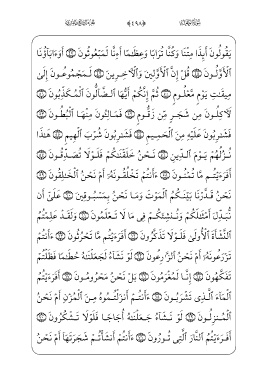 يَقُولُونَ أَىِٕذَا مِتْنَا وَكُنَّا تُرَابًا وَعِظَٰمًا أَءِنَّا لَمَبْعُوثُونَ أَوَءَابَآؤُنَا
ٱلْأَوَّلُونَ قُلْ إِنَّ ٱلْأَوَّلِينَ وَٱلْءَاخِرِينَ لَمَجْمُوعُونَ إِلَىٰ
مِيقَٰتِ يَوْمٍ مَّعْلُومٍ ثُمَّ إِنَّكُمْ أَيُّهَا ٱلضَّآلُّونَ ٱلْمُكَذِّبُونَ
لَءَاكِلُونَ مِن شَجَرٍ مِّن زَقُّومٍ فَمَالِـُٔونَ مِنْهَا ٱلْبُطُونَ
فَشَٰرِبُونَ عَلَيْهِ مِنَ ٱلْحَمِيمِ فَشَٰرِبُونَ شُرْبَ ٱلْهِيمِ هَٰذَا
نُزُلُهُمْ يَوْمَ ٱلدِّينِ نَحْنُ خَلَقْنَٰكُمْ فَلَوْلَا تُصَدِّقُونَ
أَفَرَءَيْتُم مَّا تُمْنُونَ ءَأَنتُمْ تَخْلُقُونَهُۥٓ أَمْ نَحْنُ ٱلْخَٰلِقُونَ
نَحْنُ قَدَّرْنَا بَيْنَكُمُ ٱلْمَوْتَ وَمَا نَحْنُ بِمَسْبُوقِينَ عَلَىٰٓ أَن
نُّبَدِّلَ أَمْثَٰلَكُمْ وَنُنشِئَكُمْ فِى مَا لَا تَعْلَمُونَ وَلَقَدْ عَلِمْتُمُ
ٱلنَّشْأَةَ ٱلْأُولَىٰ فَلَوْلَا تَذَكَّرُونَ أَفَرَءَيْتُم مَّا تَحْرُثُونَ ءَأَنتُمْ
تَزْرَعُونَهُۥٓ أَمْ نَحْنُ ٱلزَّٰرِعُونَ لَوْ نَشَآءُ لَجَعَلْنَٰهُ حُطَٰمًا فَظَلْتُمْ
تَفَكَّهُونَ إِنَّا لَمُغْرَمُونَ بَلْ نَحْنُ مَحْرُومُونَ أَفَرَءَيْتُمُ
ٱلْمَآءَ ٱلَّذِى تَشْرَبُونَ ءَأَنتُمْ أَنزَلْتُمُوهُ مِنَ ٱلْمُزْنِ أَمْ نَحْنُ
ٱلْمُنزِلُونَ لَوْ نَشَآءُ جَعَلْنَٰهُ أُجَاجًا فَلَوْلَا تَشْكُرُونَ
أَفَرَءَيْتُمُ ٱلنَّارَ ٱلَّتِى تُورُونَ ءَأَنتُمْ أَنشَأْتُمْ شَجَرَتَهَآ أَمْ نَحْنُ